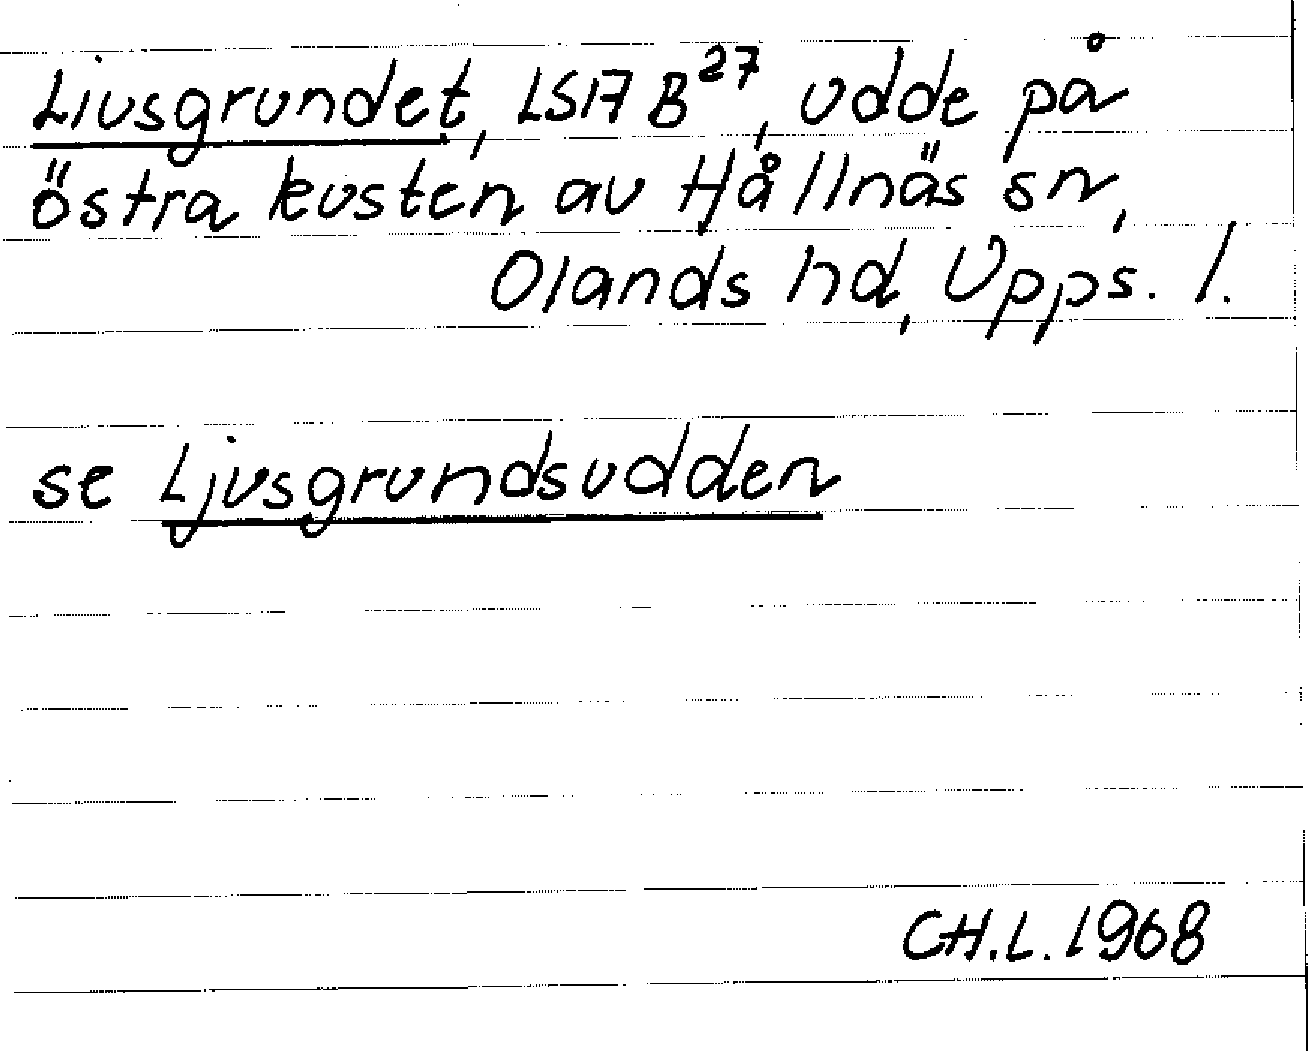 Liusgrundet, LSA B²⁷, udde på
östra kusten av Hållnäs sn,
Olands hd, Upps. l.
se Ljusgrundsudden
CH.L. 1968